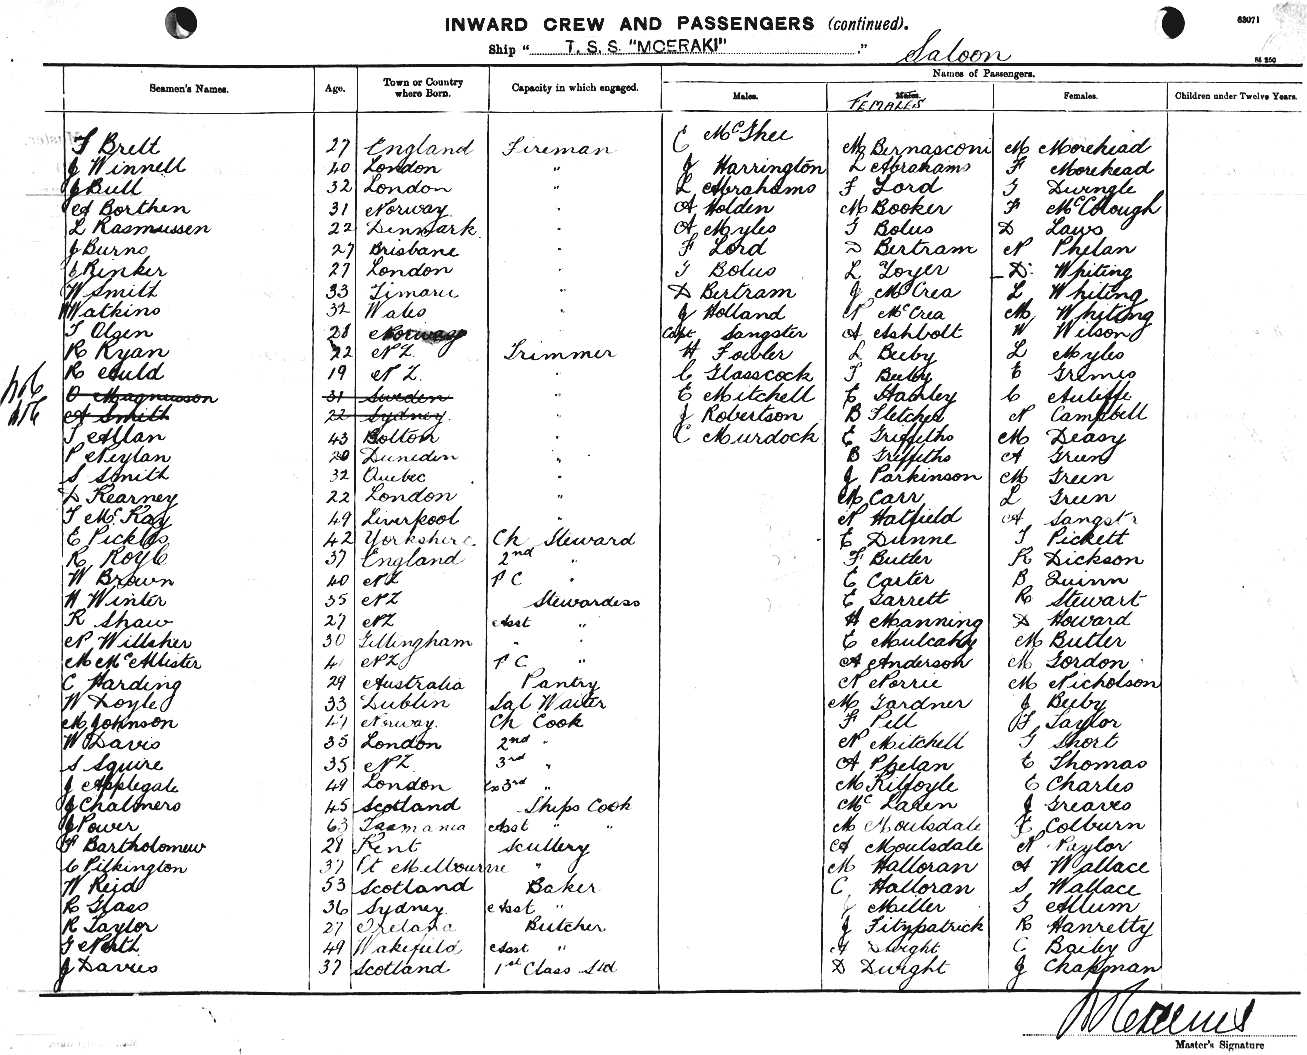 INWARD CREW AND PASSENGERS (continued).
63071
Ship " T. S. S. "MOERAKI" ." Saloon
Names of Passengers.
Seamen's Names. Age. Town or Country where Born. Capacity in which engaged. Males. Males. FEMALES Females. Children under Twelve Years.
F Brett 27 England Fireman C McGhee M Bernasconi M Morehead
J Winnell 40 London " J Harrington L Abrahams F Morehead
J Bull 32 London " L Abrahams F Lord G Dwingle
A Borthen 31 Norway " A Holden M Booker F McColough
L Rasmussen 22 Denmark " A Myles G Bolus D Laws
J Burns 27 Brisbane " F Lord D Bertram N Phelan
J Rinker 27 London " G Bolus L Toyer D Whiting
W Smith 33 Timaru " D Bertram J McCrea L Whiting
W Watkins 32 Wales " J Holland N McCrea M Whiting
T Olsen 28 Norway " Capt Sangster A Ashbolt W Wilson
R Ryan 22 NZ Trimmer H Fowler L Beeby L Myles
R Auld 19 NZ " C Glasscock T Beeby E Grimes
O Magnusson 31 Sweden " E Mitchell E Hanley C Auliffe
A Smith 22 Sydney " J Robertson B Fletcher N Campbell
T Allan 43 Bolton " C Murdock E Griffiths M Deasy
P Neylan 20 Dunedin " B Griffiths A Green
S Smith 32 Quebec " J Parkinson M Green
D Kearney 22 London " M Carr L Green
T McKay 49 Liverpool " N Hatfield A Sangstr
E Pickles 42 Yorkshire Ch Steward E Dunne T Pickett
R Royle 37 England 2nd " F Butler R Dickson
W Brown 40 NZ F C " E Carter B Quinn
H Winter 35 NZ Stewardess E Garrett R Stewart
R Shaw 27 NZ Asst " H Manning D Howard
N Willsher 30 Gillingham " " E Mulcahy M Butler
M McAllister 4 NZ F C " A Anderson M Gordon
C Harding 29 Australia Pantry N Norrie M Nicholson
W Doyle 33 Dublin Sal Waiter M Gardner J Beeby
M Johnson 47 Norway Ch Cook F Pell F Taylor
W Davis 35 London 2nd " N Mitchell G Short
S Squire 35 NZ 3rd " A Phelan E Thomas
J Applegate 49 London Ex 3rd " M Kilfoyle E Charles
J Chalmers 45 Scotland Ships Cook Mc Laren J Greaves
J Power 63 Tasmania Asst " " M Moulsdale E Colburn
F Bartholomew 28 Kent Scullery A Moulsdale N Naylor
C Pilkington 37 Pt Melbourne " M Halloran A Wallace
W Reid 53 Scotland Baker C Halloran S Wallace
R Glass 36 Sydney Asst " J Miller G Allum
R Taylor 27 Ireland Butcher J Fitzpatrick R Hanretty
G Perth 49 Wakefield Asst " A Dwight C Bailey
J Davies 37 Scotland 1st Class Std D Dwight J Chapman
Master's Signature